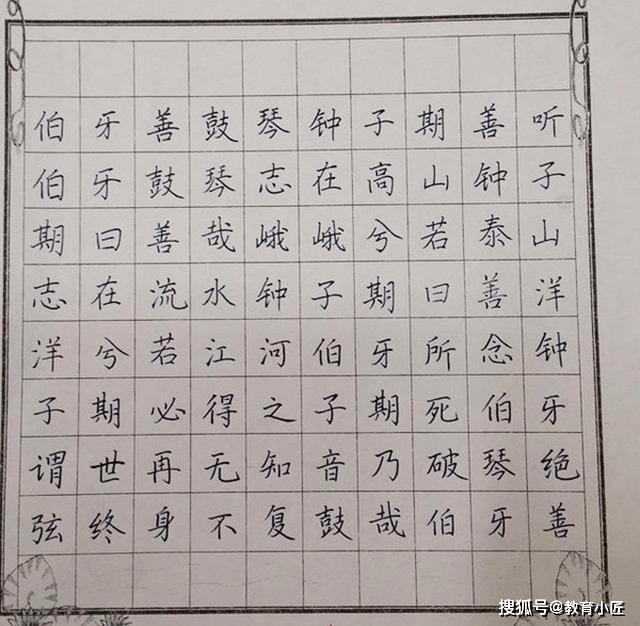 伯牙善鼓琴钟子期善听
伯牙鼓琴志在高山钟子
期曰善哉峨峨兮若泰山
志在流水钟子期曰善洋
洋兮若江河伯牙所念钟
子期必得之子期死伯牙
谓世再无知音乃破琴绝
弦终身不复鼓哉伯牙善
搜狐号@教育小匠